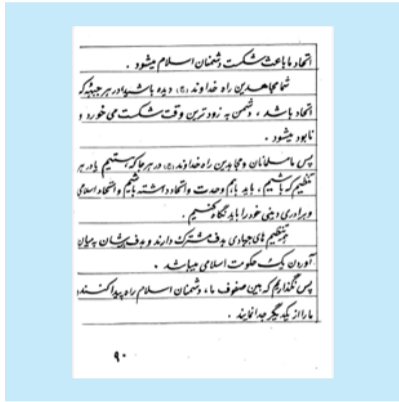 اتحاد ما باعث شکست دشمنان اسلام میشود .
شما مجاهدین راه خداوند (ج) دیده باشید در هر جبهه که
اتحاد باشد ، دشمن به زود ترین وقت شکست می خورد و
نابود میشود .
پس ما مسلمانان و مجاهدین راه خداوند (ج) در هر جا که هستیم یا در هر
تنظیم که باشیم ، باید باهم وحدت و اتحاد داشته باشیم و اتحاد اسلامی
و برادری دینی خود را باید نگاه کنیم .
هر تنظیم های جهادی هدف مشترک دارند و هدف شان به میان
آوردن یک حکومت اسلامی میباشد .
پس نگذاریم که بین صفوف ما ، دشمنان اسلام راه پیدا کنند و
ما را از یکدیگر جدا نمایند .
۹۰